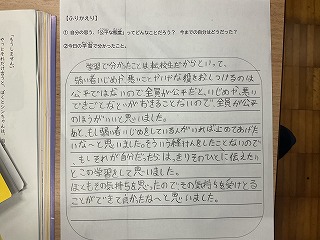 【ふりかえり】
① 自分の思う、「公平な態度」ってどんなことだろう？ 今までの自分はどうだった？
②今日の学習で分かったこと。
学習で分かったことは転校生だからといって、
弱い者いじめや、悪いことやいけない種をおしつけるのは
公平ではないので全員が公平だと、いじめや、悪い
できごとなどがおきることないので全員が公平
のほうがいいと思いました。
あと、もし弱い者いじめをしている人がいれば止めてあげた
いな～と思いました。そういう経けんをしたことないので
、もしそれが自分だったら、はっきりそのひとに伝えたい
とこの学習をして思いました。
ほともその気持ちを思ったのでその気持ちを受けとる
ことができて良かったな～と思いました。
「もうしません。